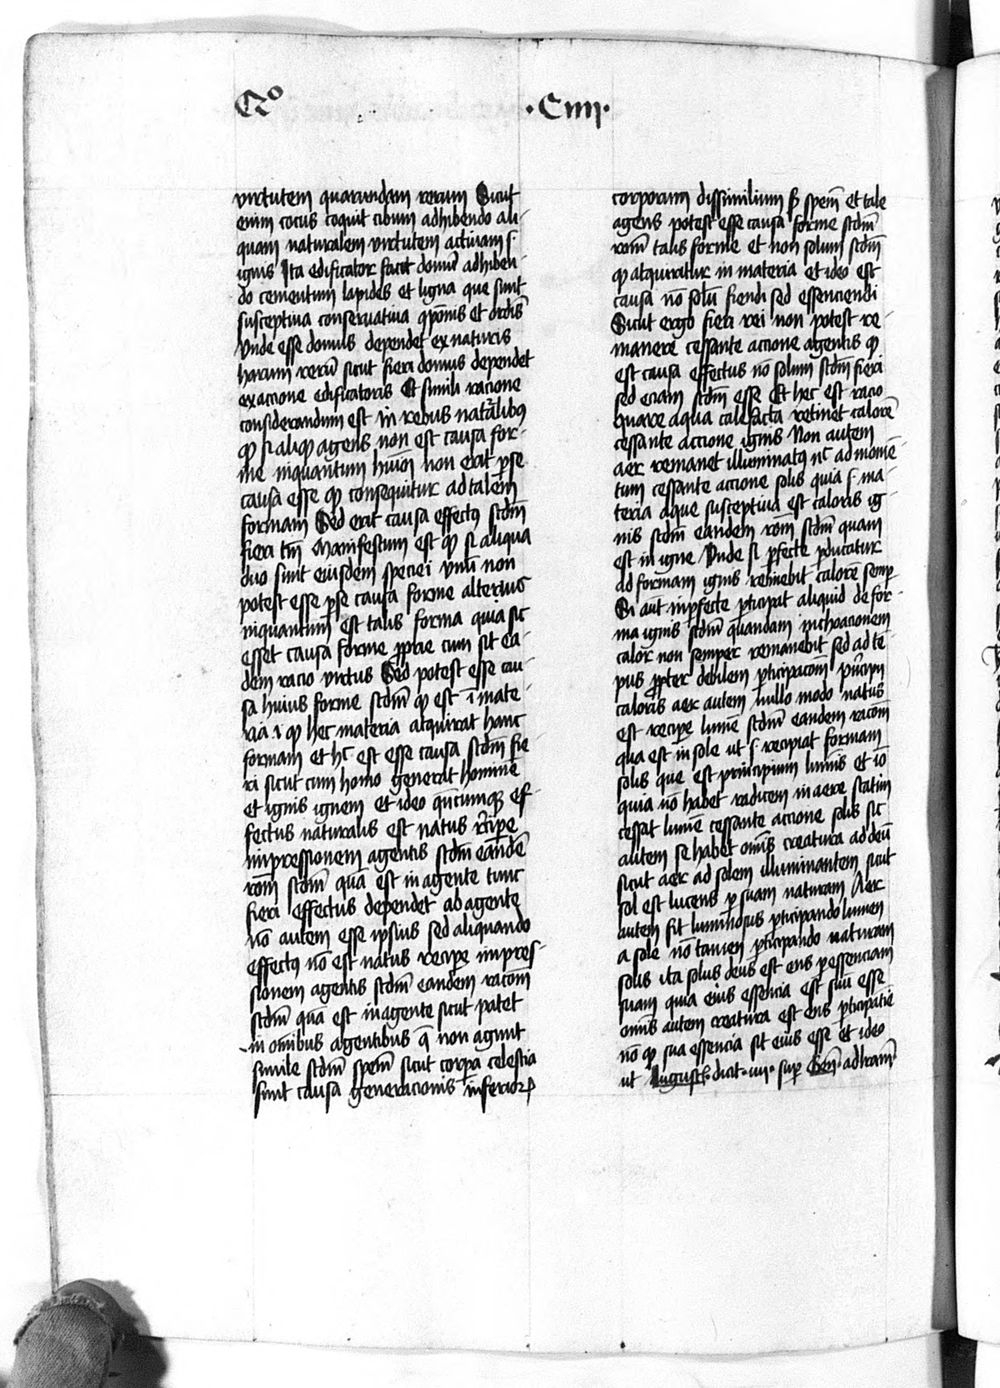 Qº ·Ciiij·
virtutem quarundam rerum Sicut
enim cocus coquit cibum adhibendo ali-
quam naturalem virtutem actiuam s·
ignis Ita edificator facit domū adhiben-
do cementum lapides et ligna que sunt
susceptiua conseruatiua ꝯpōnis et ordīs
Vnde esse domus dependet ex naturis
harum rerū sicut fieri domus dependet
ex accione edificatoris Et simili racione
considerandum est in rebus nat̄alibꝯ
qꝫ si aliqꝫ agens non est causa for-
me inquantum hiꝰōi non erit ꝑ se
causa esse qꝫ consequitur ad talem
formam Sed erit causa effectꝯ scdm̄
fieri tm̄ Manifestum est qꝫ si aliqua
duo sunt eiusdem speciei vnū non
potest esse ꝑ se causa forme alterius
inquantum est talis forma quia sic
esset causa forme ꝓprie cum sit ea-
dem racio vtriꝰ Sed potest esse cau-
sa huius forme scdm̄ qꝫ est ī mate-
ria ·i· qꝫ hec materia acquirat hanc
formam et hᶜ est esse causa scdm̄ fie-
ri sicut cum homo generat hominē
et ignis ignem et ideo qn̄cumqꝫ ef-
fectus naturalis est natus rēcipe
impressionem agentis scdm̄ eandē
rōm̄ scdm̄ quā est in agente tunc
fieri effectus dependet ab agente
nō autem esse ipsius sed aliquando
effectꝯ nō est natus recipe impres-
sionem agentis scdm̄ eandem racōm̄
scdm̄ quā est in agente sicut patet
in om̄ibus agentibus q̄ non agunt
simile scdm̄ spem̄ sicut corpa celestia
sunt causa generacionis inferioꝝ
corporum dissimilium ß spem̄ et tale
agens potest esse causa forme scdm̄
rōm̄ talis forme et non solum scdm̄
qꝫ acquiritur in materia et ideo est
causa nō solū fiendi sed essenciendi
Sicut ergo fieri rei non potest re-
manere cessante accione agentis qꝫ
est causa effectus nō solum scdm̄ fieri
sed eciam scdm̄ esse Et hec est racio
quare aqua calefacta retinet calorē
cessante accione ignis Non autem
aer remanet illuminatꝯ nᶜ ad momē-
tum cessante accione solis quia s· ma-
teria aque susceptiua est caloris ig-
nis scdm̄ eandem rōm̄ scdm̄ quam
est in igne Vnde si ꝑfecte ꝑducatur
ad formam ignis retinebit calorē semꝑ
Si aut̄ inꝑfecte ꝑticipat aliquid de for-
ma ignis scdm̄ quandam inchoacionem
calor non semper remanebit sed ad tē-
pus ꝓpter debilem ꝑticipacōm̄ prīcipij
caloris aer autem nullo modo natus
est recipe lumē scdm̄ eandem racōm̄
qua est in sole ut s· recipiat formam
solis que est principium luminis et iō
quia nō habet radicem in aere statim
cessat lumē cessante accione solis sic
autem se habet omis creatura ad deū
sicut aer ad solem illuminantem sicut
sol est lucens ꝑ suam naturam Aer
autem fit luminosus ꝑticipando lumen
a sole nō tamen ꝑticipando naturam
solis ita solus deus est ens ꝑ essenciam
suam quia eius essencia est suū esse
omis autem creatura est ens ꝑticipatīe
nō qꝫ sua essencia sit eius esse et ideo
ut Augustꝰ dicit ·iiij· suꝑ Gen̄· ad litteram